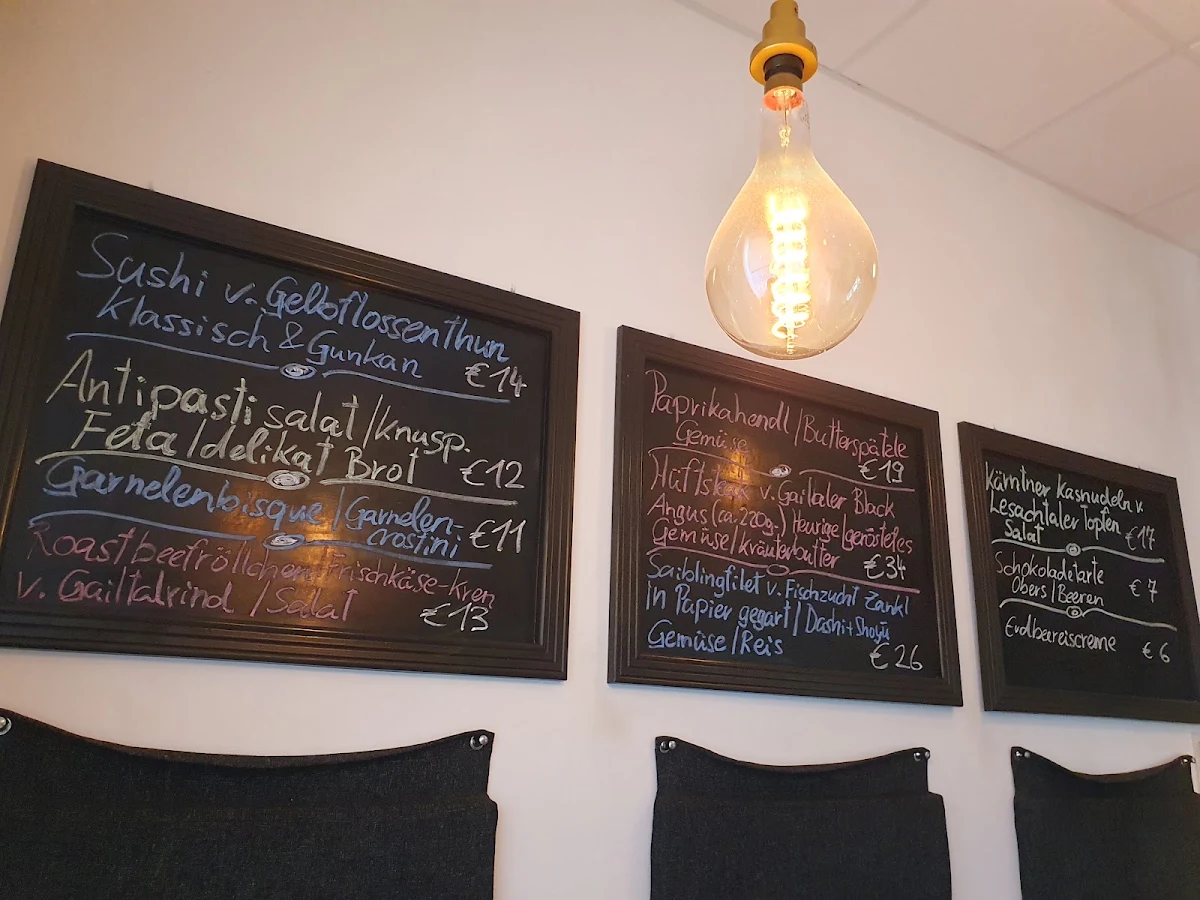 Sushi v. Gelbflossenthun
Klassisch & Gunkan €14
Antipastisalat / Knusp.
Feta / delikat Brot €12
Garnelenbisque / Garnelen-
crostini €11
Roastbeefröllchen Frischkäse-Kren
v. Gailtalrind / Salat €13
Paprikahendl / Butterspätzle
Gemüse €19
Hüftsteak v. Gailtaler Black
Angus (ca. 220g.) Heurige / geröstetes
Gemüse / Kräuterbutter €34
Saiblingfilet v. Fischzucht Zankl
in Papier gegart / Dashi + Shoyu
Gemüse / Reis €26
Kärntner Kasnudeln v.
Lesachtaler Topfen
Salat €17
Schokoladetarte
Obers / Beeren €7
Erdbeereiscreme €6